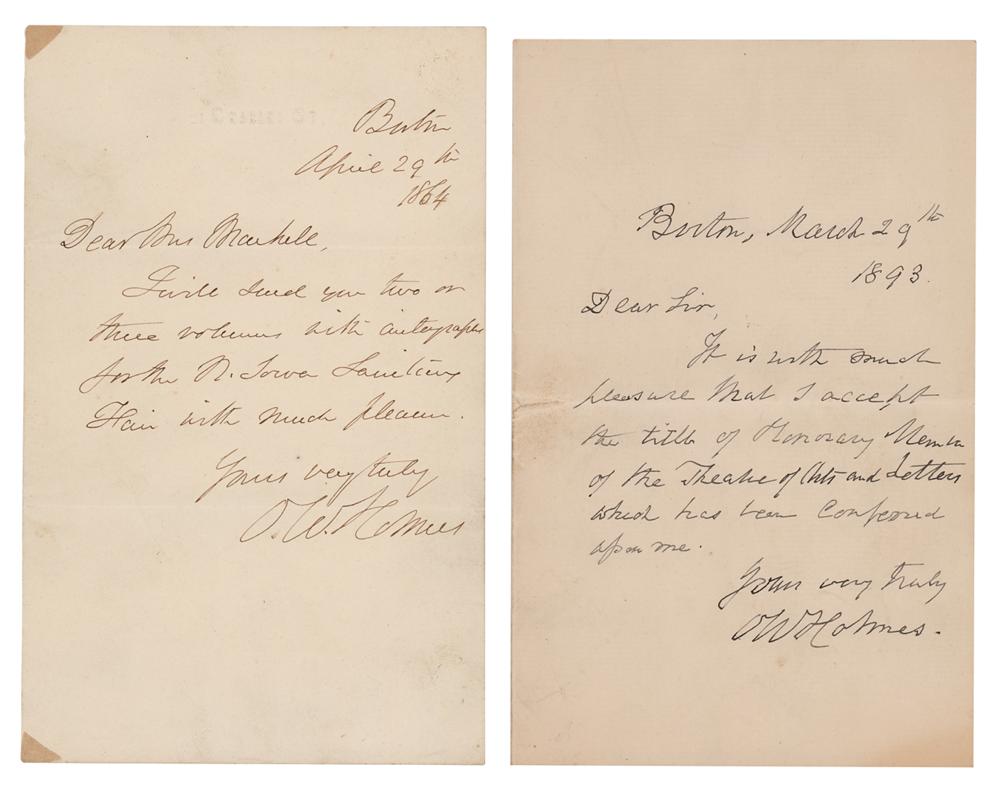 Boston
April 29th
1864
Dear Mrs
I will send you two or
three volumes with autographs
for the N. Iowa Sanitary
Fair with much pleasure.
Yours very truly
O. W. Holmes
Boston, March 29th
1893.
Dear Sir,
It is with much
pleasure that I accept
the title of Honorary Member
of the Theatre of Arts and Letters
which has been conferred
upon me.
Yours very truly
O W Holmes.